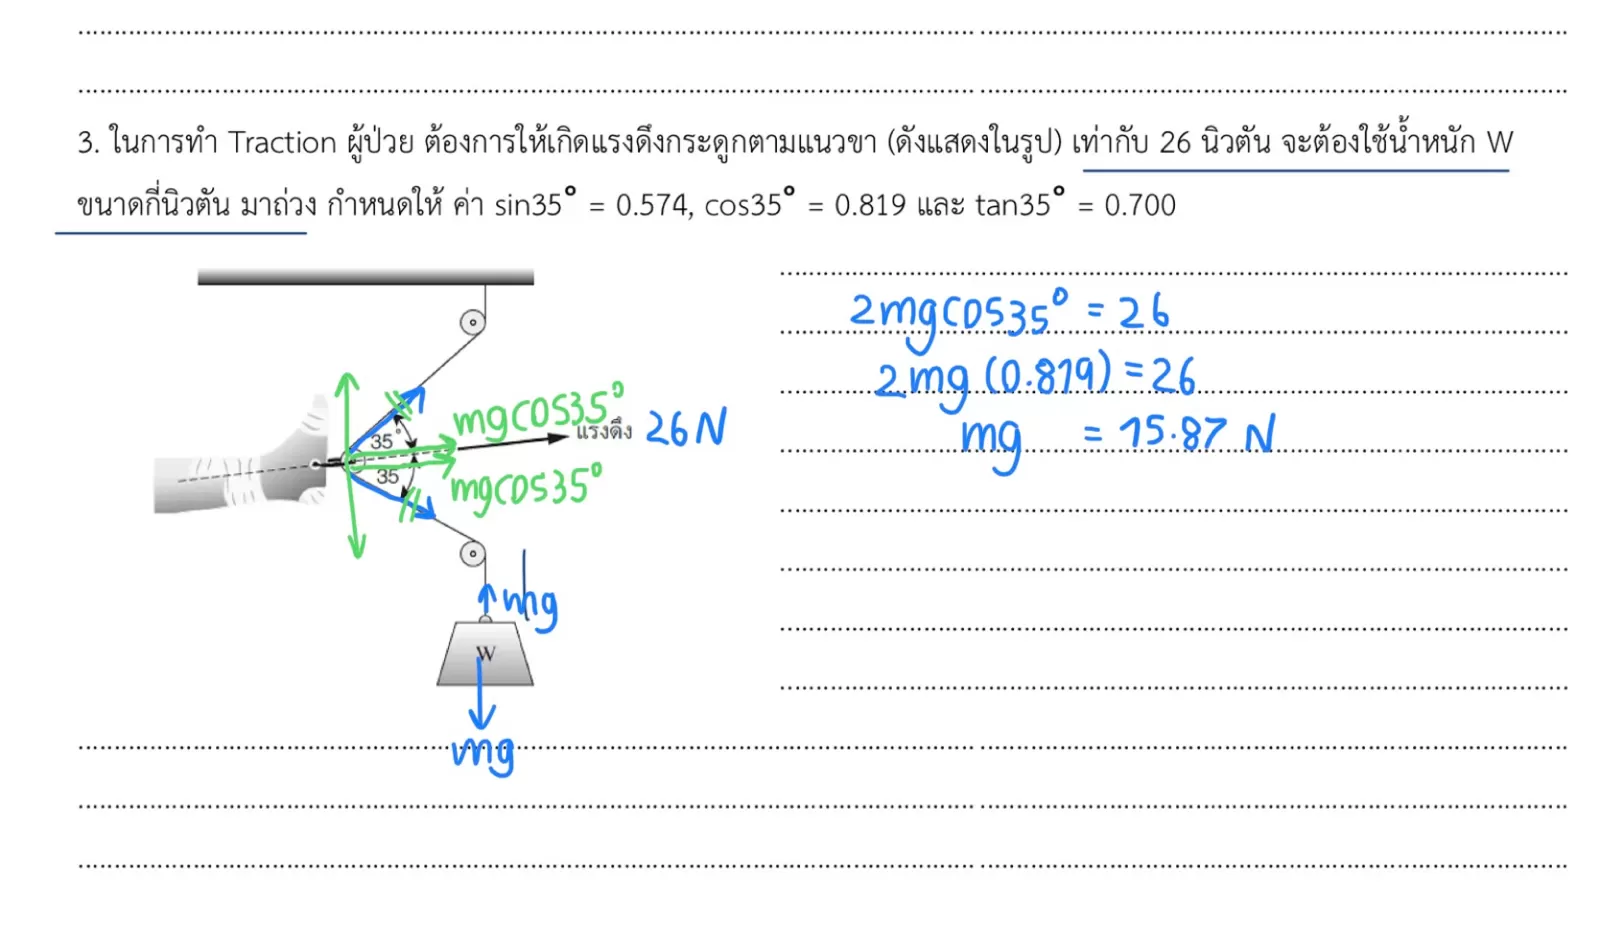 3. ในการทำ Traction ผู้ป่วย ต้องการให้เกิดแรงดึงกระดูกตามแนวขา (ดังแสดงในรูป) เท่ากับ 26 นิวตัน จะต้องใช้น้ำหนัก W
ขนาดกี่นิวตัน มาถ่วง กำหนดให้ ค่า sin35° = 0.574, cos35° = 0.819 และ tan35° = 0.700
2mgcos35° = 26
2mg (0.819) = 26
mg = 15.87 N
mgcos35°
35°
แรงดึง 26 N
35
mgcos35°
mg
W
mg